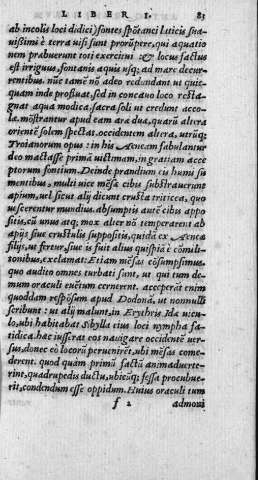 LIBER I. 83
ab incolis loci didici) fontes spõtanei laticis sua-
uissimi è terra uisi sunt prorupere, qui aquatio
nem prabuerunt toti exercitui: & locus factus
est irriguus, fontanis aquis usq; ad mare decur-
rentibus. nũc tamẽ nõ adeo redundant ut quic-
quam inde profluat, sed in concauo loco restag-
nat aqua modica, sacra soli ut credunt acco-
la. mõstrantur apud eam ara dua, quarũ altera
orientẽ solem spectat, occidentem altera, utrũq;
Troianorum opus: in his Aeneam fabulantur
deo mactasse primã uictimam, in gratiam acce
ptorum fontium. Deinde prandium cũ humi su
mentibus, multi uice mẽsa cibis substrauerunt
apium, uel sicut alij dicunt crusta triticea, quo
uescerentur mundius. absumptis autẽ cibis appo
sitis, cũ unus atq; mox alter nõ temperarent ab
apijs siue crustulis suppositis, quidã ex Aenea
filijs, ut fertur, siue is fuit alius quispiã è cõmili-
tonibus, exclamat: Etiam mẽsas cõsumpsimus.
quo audito omnes turbati sunt, ut qui tum de-
mum oraculi euẽtum cernerent. acceperãt enim
quoddam respõsum apud Dodonã, ut nonnulli
scribunt: ut alij malunt, in Erythris Ida uicu-
lo, ubi habitabat Sibylla eius loci nympha fa-
tidica. hac iusserat eos nauigare occidentẽ uer-
sus, donec eò locorũ peruenirẽt, ubi mẽsas come-
derent. quod quam primũ factũ animaduerte-
rint, quadrupedis ductu, ubicũq; fessa procubue-
rit, condendum esse oppidum. Huius oraculi tum
f 2 admoni